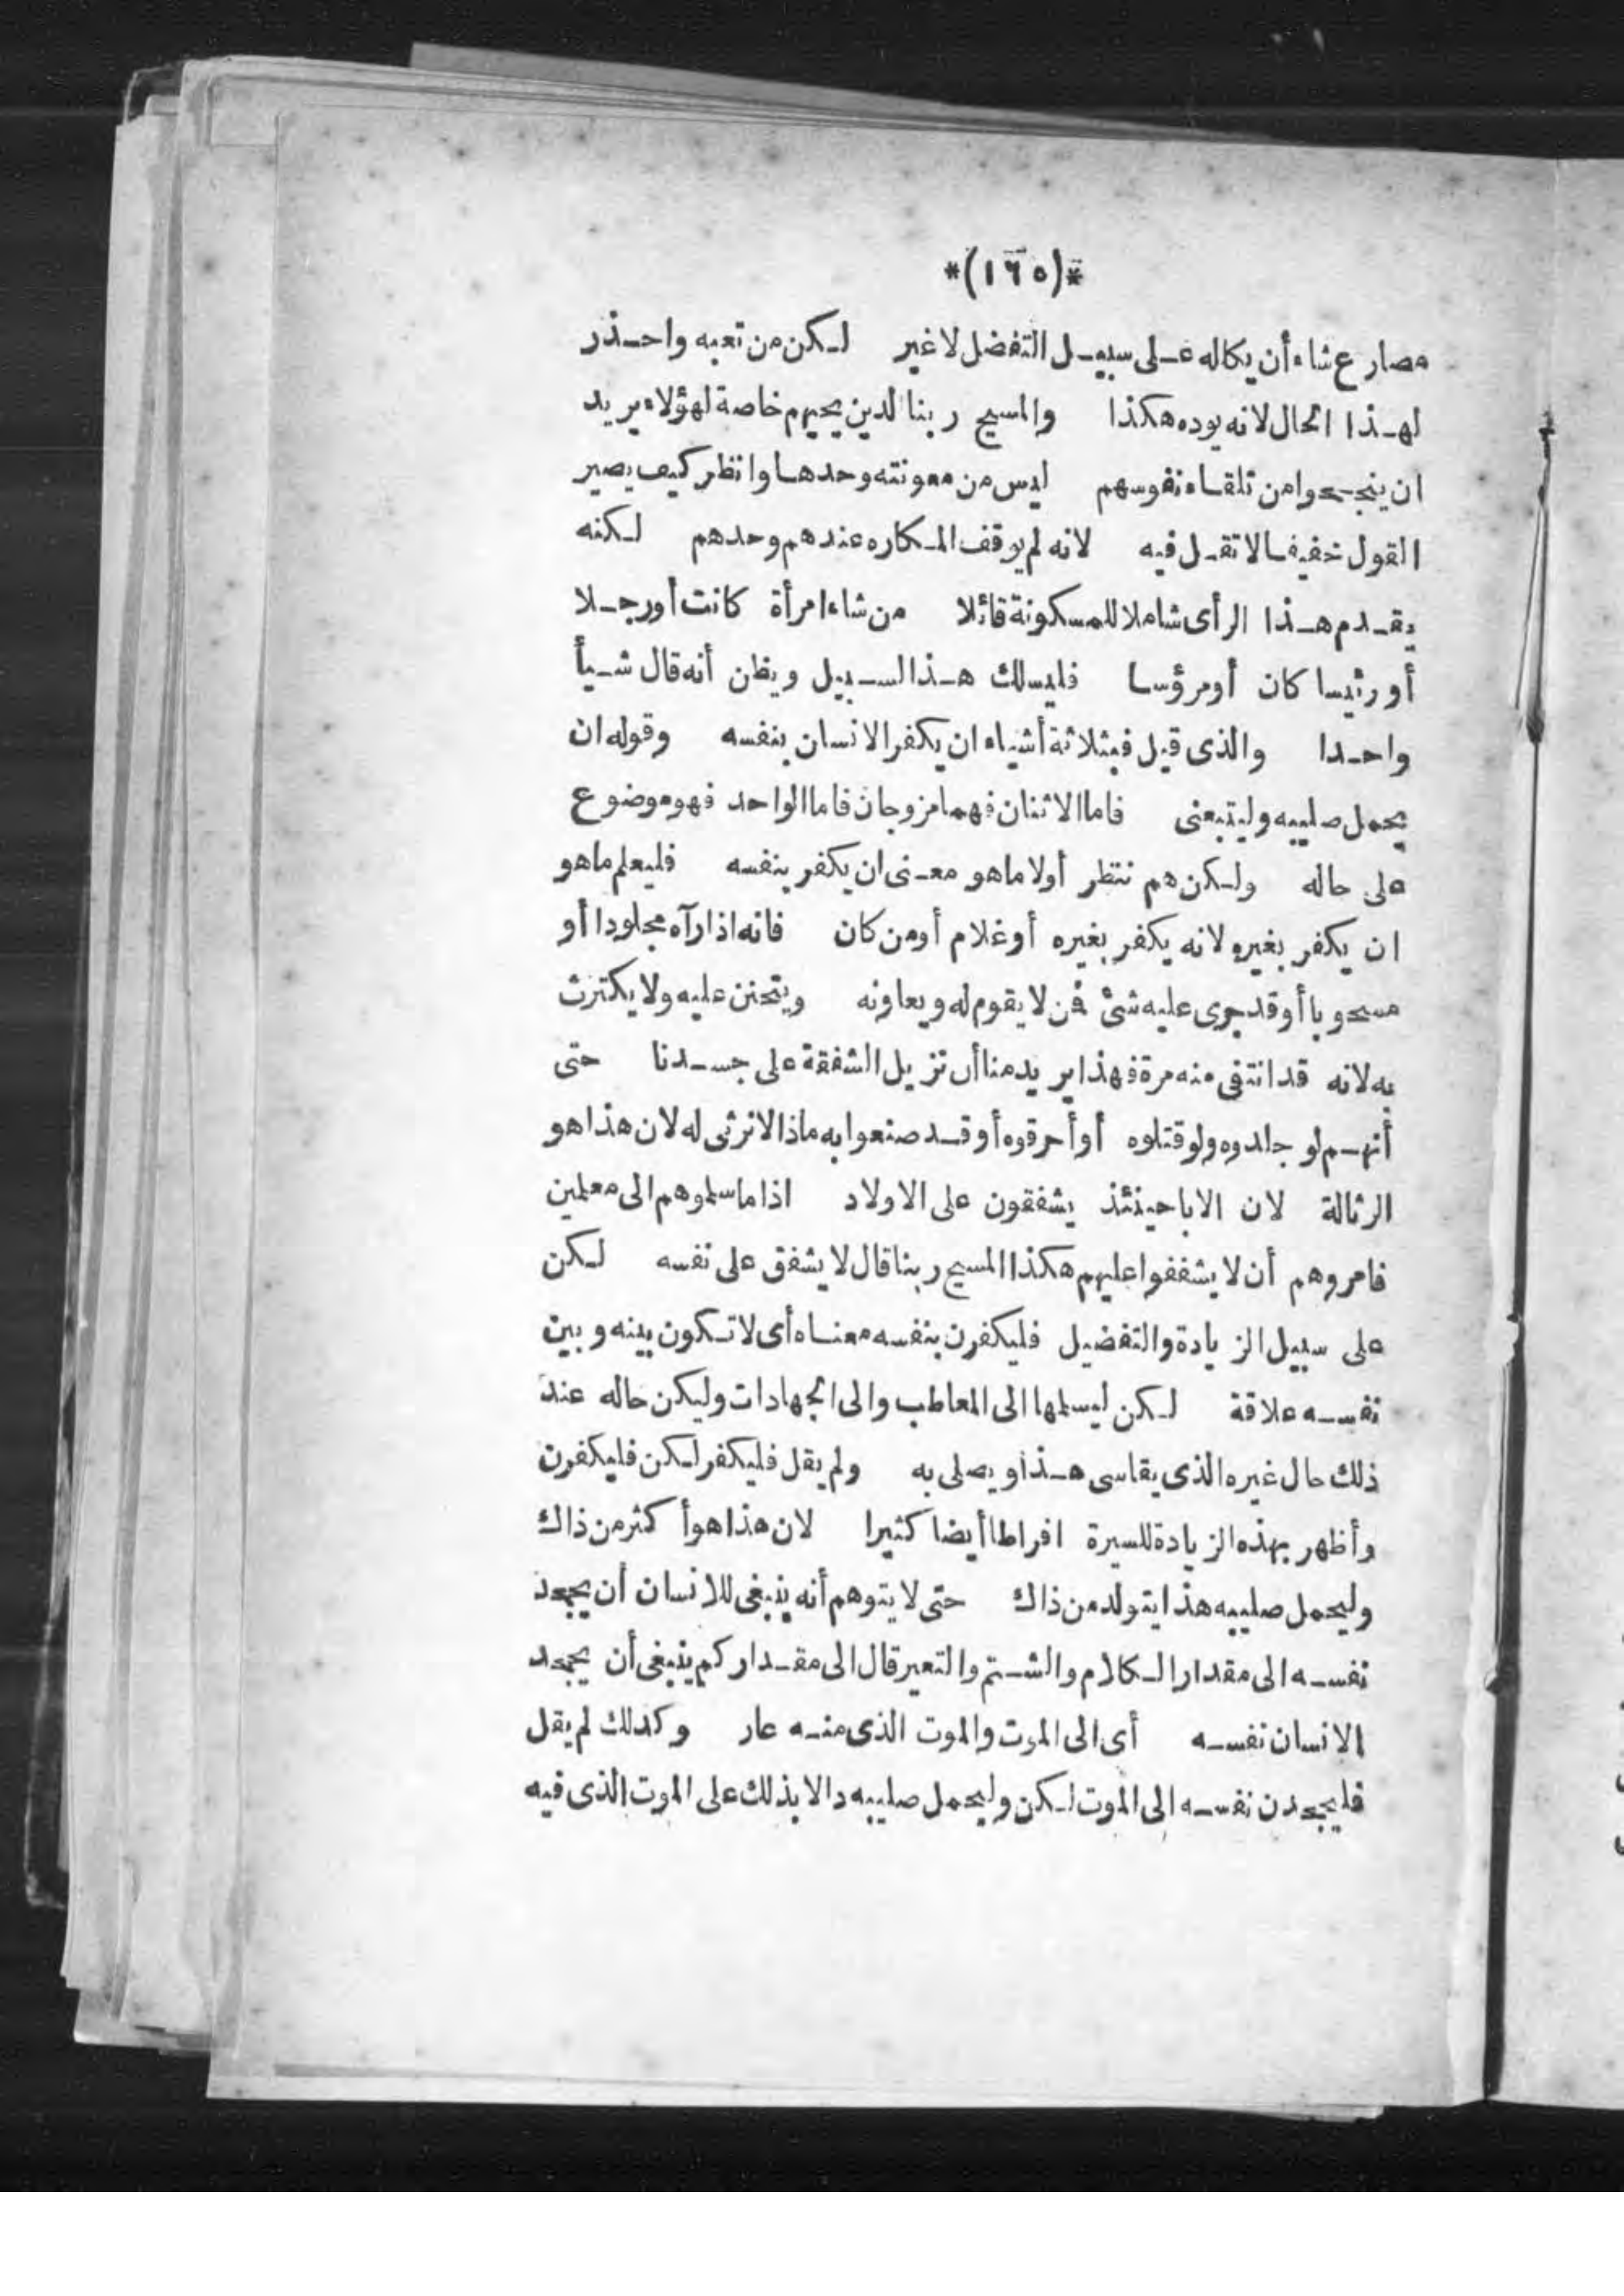 *(١٦٥)*
مصارع شاء أن يكاله على سبيل التفضل لا غير لكن من تعبه واحذر
لهذا الحال لانه يوده هكذا والمسيح ربنا لدين يحيهم خاصة لهؤلاء يريد
ان ينجحوا من تلقاء نفوسهم ليس من معونته وحدها وانظر كيف يصير
القول خفيفا لا تقل فيه لانه لم يوقف المكاره عندهم وحدهم لكنه
يقدم هذا الرأى شاملا للمسكونة قائلا من شاء امرأة كانت أو رجلا
أو رئيسا كان أو مرؤسا فليسلك هذا السبيل ويظن أنه قال شيأ
واحدا والذى قيل فبثلاثة أشياء ان يكفر الانسان بنفسه وقوله ان
يحمل صليبه وليتبعنى فاما الاثنان فهما مزوجان فاما الواحد فهو موضوع
على حاله ولكن هم ننتظر أولا ما هو معنى ان يكفر بنفسه فليعلم ما هو
ان يكفر بغيره لانه يكفر بغيره أو غلام أو من كان فانه اذا رآه مجلودا أو
مسحوبا أو قد جرى عليه شئ فن لا يقوم له ويعاونه ويتحنن عليه ولا يكترث
به لانه قد انتفى منه مرة فهذا يريد منا أن تزيل الشفقة على جسدنا حتى
أنهم لو جلدوه ولو قتلوه أو أحرقوه أو قد صنعوا به ماذا لا نرثى له لان هذا هو
الرثالة لان الابا حينئذ يشفقون على الاولاد اذا ما سلموهم الى معلمين
فامروهم أن لا يشفقوا عليهم هكذا المسيح ربنا قال لا يشفق على نفسه لكن
على سبيل الزيادة والتفضيل فليكفرن بنفسه معناه أى لا تكون بينه وبين
نفسه علاقة لكن ليسلمها الى المعاطب والى الجهادات وليكن حاله عند
ذلك حال غيره الذى يقاسى هذا ويصلى به ولم يقل فليكفر لكن فليكفرن
وأظهر بهذه الزيادة للسيرة افراطا أيضا كثيرا لان هذا هو أكثر من ذاك
وليحمل صليبه هذا يتولد من ذاك حتى لا يتوهم أنه ينبغى للانسان أن يجحد
نفسه الى مقدار الكلام والشتم والتعير قال الى مقدار كم ينبغى أن يجحد
الانسان نفسه أى الى الموت والموت الذى منه عار وكدلك لم يقل
فليجحدن نفسه الى الموت لكن وليحمل صليبه دالا بذلك على الموت الذى فيه